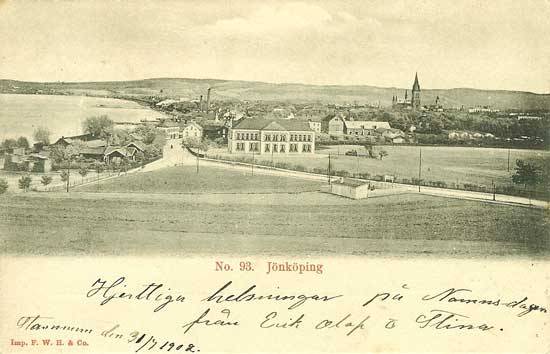 No. 93. Jönköping
Hjertliga helsningar på Namnsdagen
från Erik Olof o Stina.
den 31/7 1902.
Imp. F. W. H. & Co.